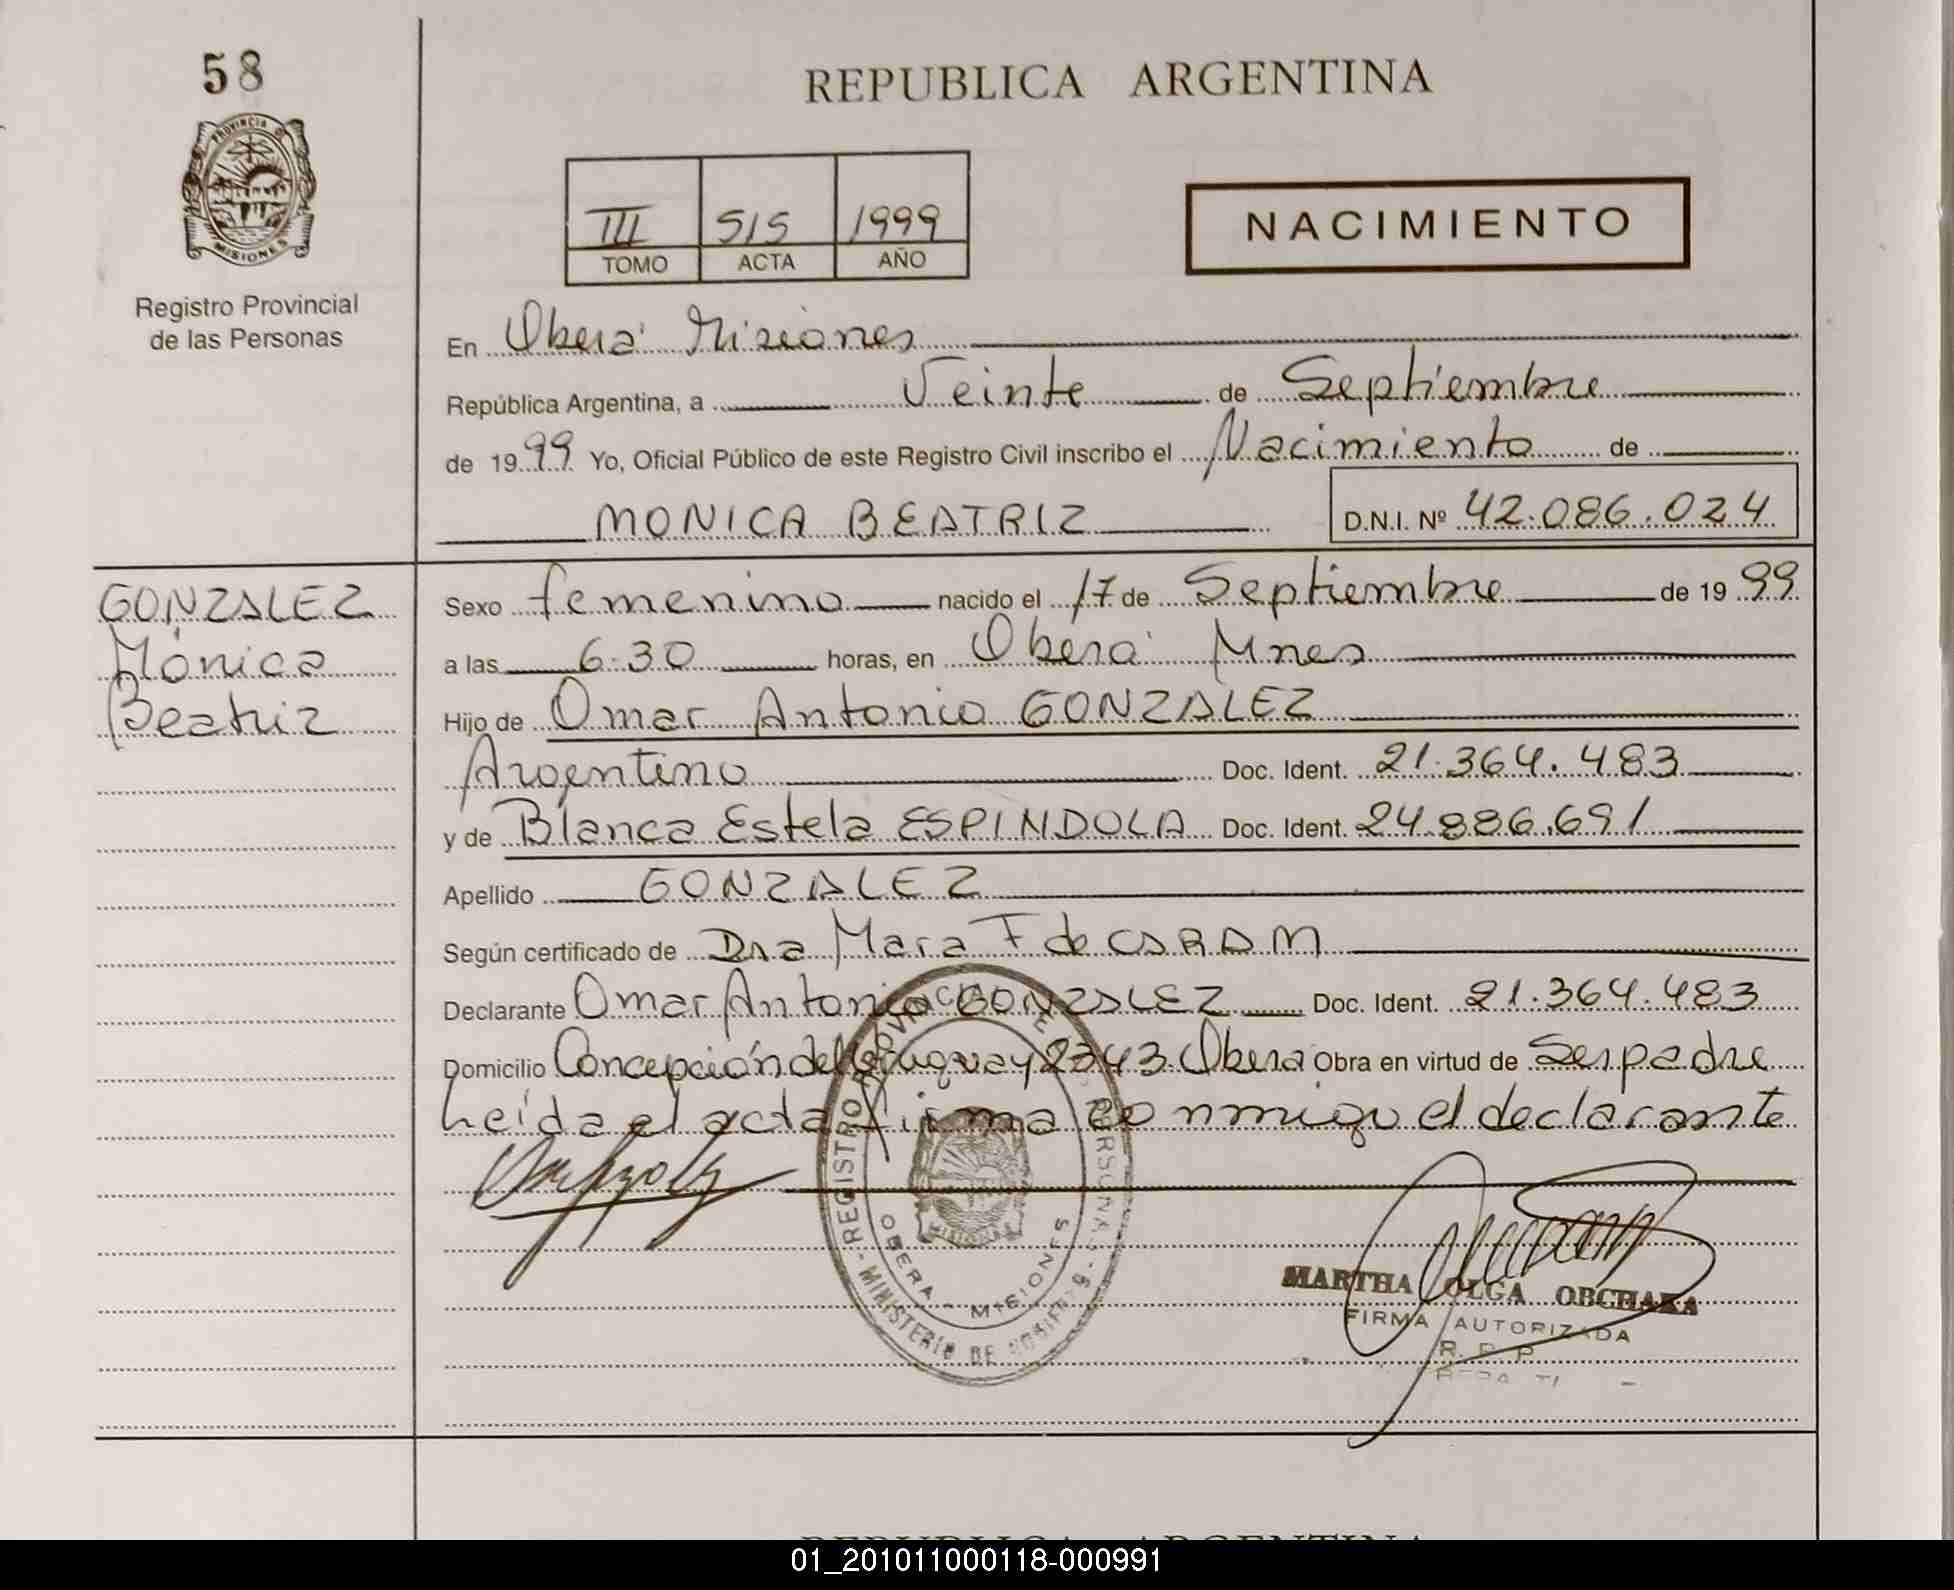 58
REPUBLICA ARGENTINA
PROVINCIA D
MISIONES
Registro Provincial
de las Personas
III 515 1999
TOMO ACTA AÑO
NACIMIENTO
En Oberá Misiones
República Argentina, a Veinte de Septiembre
de 1999 Yo, Oficial Público de este Registro Civil inscribo el Nacimiento de
MONICA BEATRIZ D.N.I. Nº 42.086.024
GONZALEZ
Mónica
Beatriz
Sexo femenino nacido el 17 de Septiembre de 1999
a las 6.30 horas, en Oberá Mnes
Hijo de Omar Antonio GONZALEZ
Argentino Doc. Ident. 21.364.483
y de Blanca Estela ESPINDOLA Doc. Ident. 24.886.691
Apellido GONZALEZ
Según certificado de Dra Mara F de CARAM
Declarante Omar Antonio GONZALEZ Doc. Ident. 21.364.483
Domicilio Concepción del Uruguay 2343 Oberá Obra en virtud de Ser padre
Leída el acta firma conmigo el declarante
REGISTRO PROVINCIAL DE PERSONAS
MISIONES
OBERA - MISIONES
- MINISTERIO DE GOBIERNO -
MARTHA OLGA OBCHARA
FIRMA AUTORIZADA
R. P. P.
REPUBLICA ARGENTINA
01_201011000118-000991